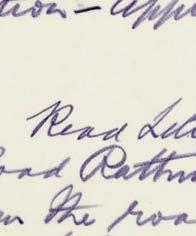 tion - appr
Read
oad Rathm
the roa